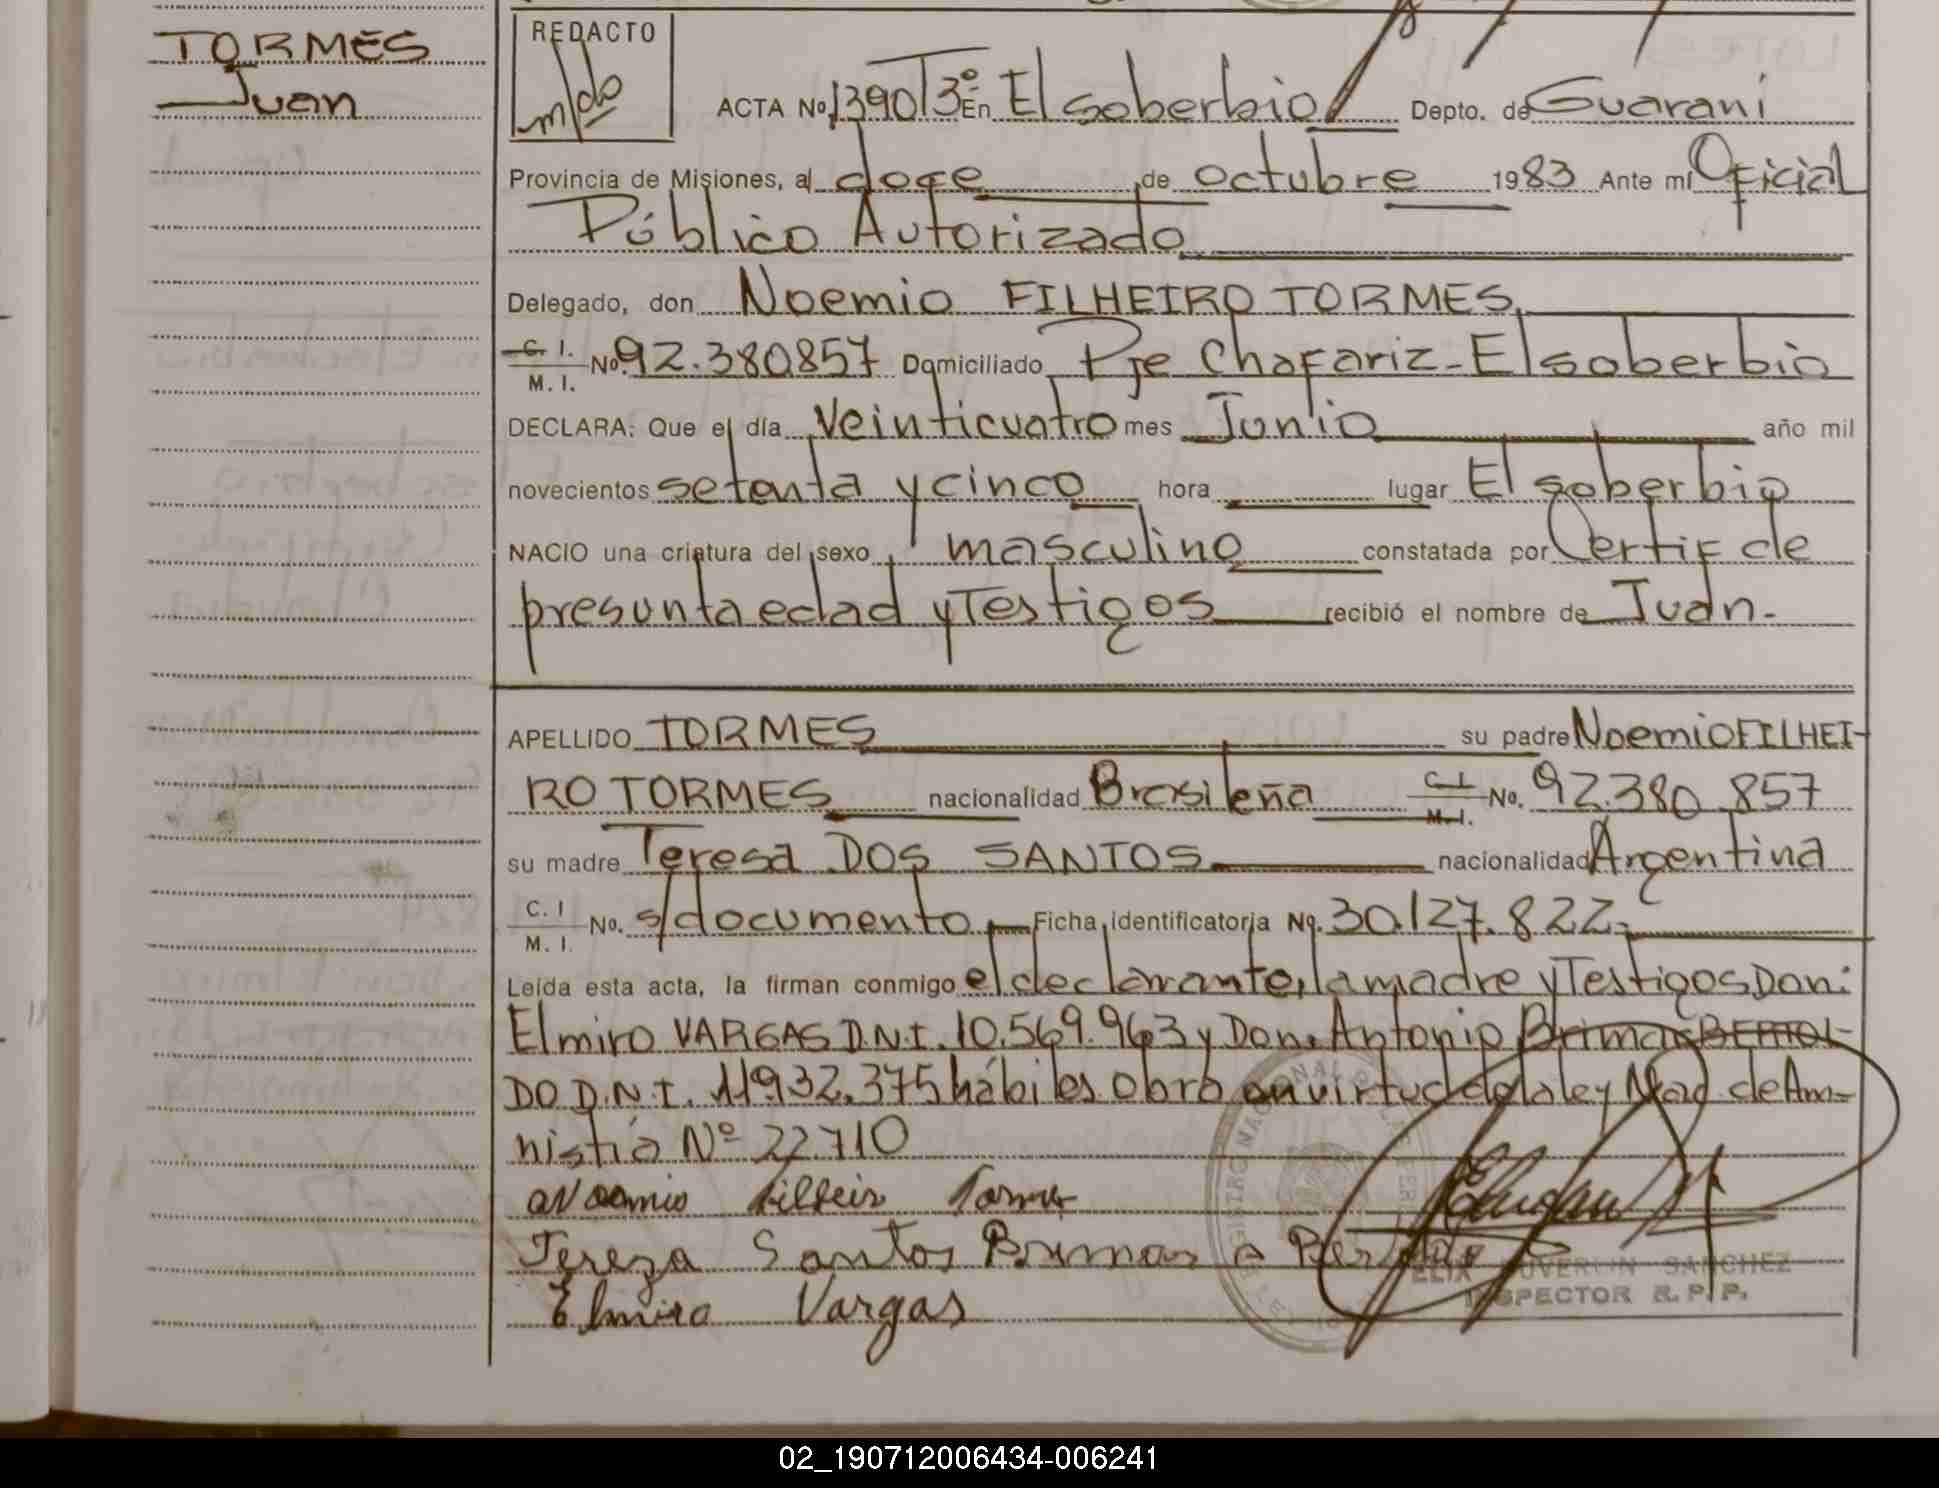 TORMES
Juan
REDACTO
ACTA No 1390 T 3º En El soberbio Depto. de Guarani
Provincia de Misiones, al doce de octubre 1983 Ante mi Oficial
Público Autorizado
Delegado, don Noemio FILHEIRO TORMES
C. I. M. I. No. 92.380857 Domiciliado Pje Chafariz - El soberbio
DECLARA: Que el día Veinticuatro mes Junio año mil
novecientos setenta y cinco hora lugar El soberbio
NACIO una criatura del sexo masculino constatada por Certif de
presunta edad y Testigos recibió el nombre de Juan.
APELLIDO TORMES su padre Noemio FILHEI-
RO TORMES nacionalidad Brasileña C. I. M. I. No. 92.380.857
su madre Teresa DOS SANTOS nacionalidad Argentina
C. I M. I. No. s/documento Ficha identificatoria No. 30.127.822.-
Leida esta acta, la firman conmigo el declarante, la madre y Testigos Don:
Elmiro VARGAS D.N.I. 10.569.963 y Don. Antonio Brimas BERTOL-
DO D.N.I. 11.932.375 hábiles. obro en virtud de la ley Nac. de Am-
nistia Nº 22.710
Noemio Filheir Torme
Tereza Santos Brimas a Ber
Elmiro Vargas
SANCHEZ
INSPECTOR R. P. P.
02_190712006434-006241